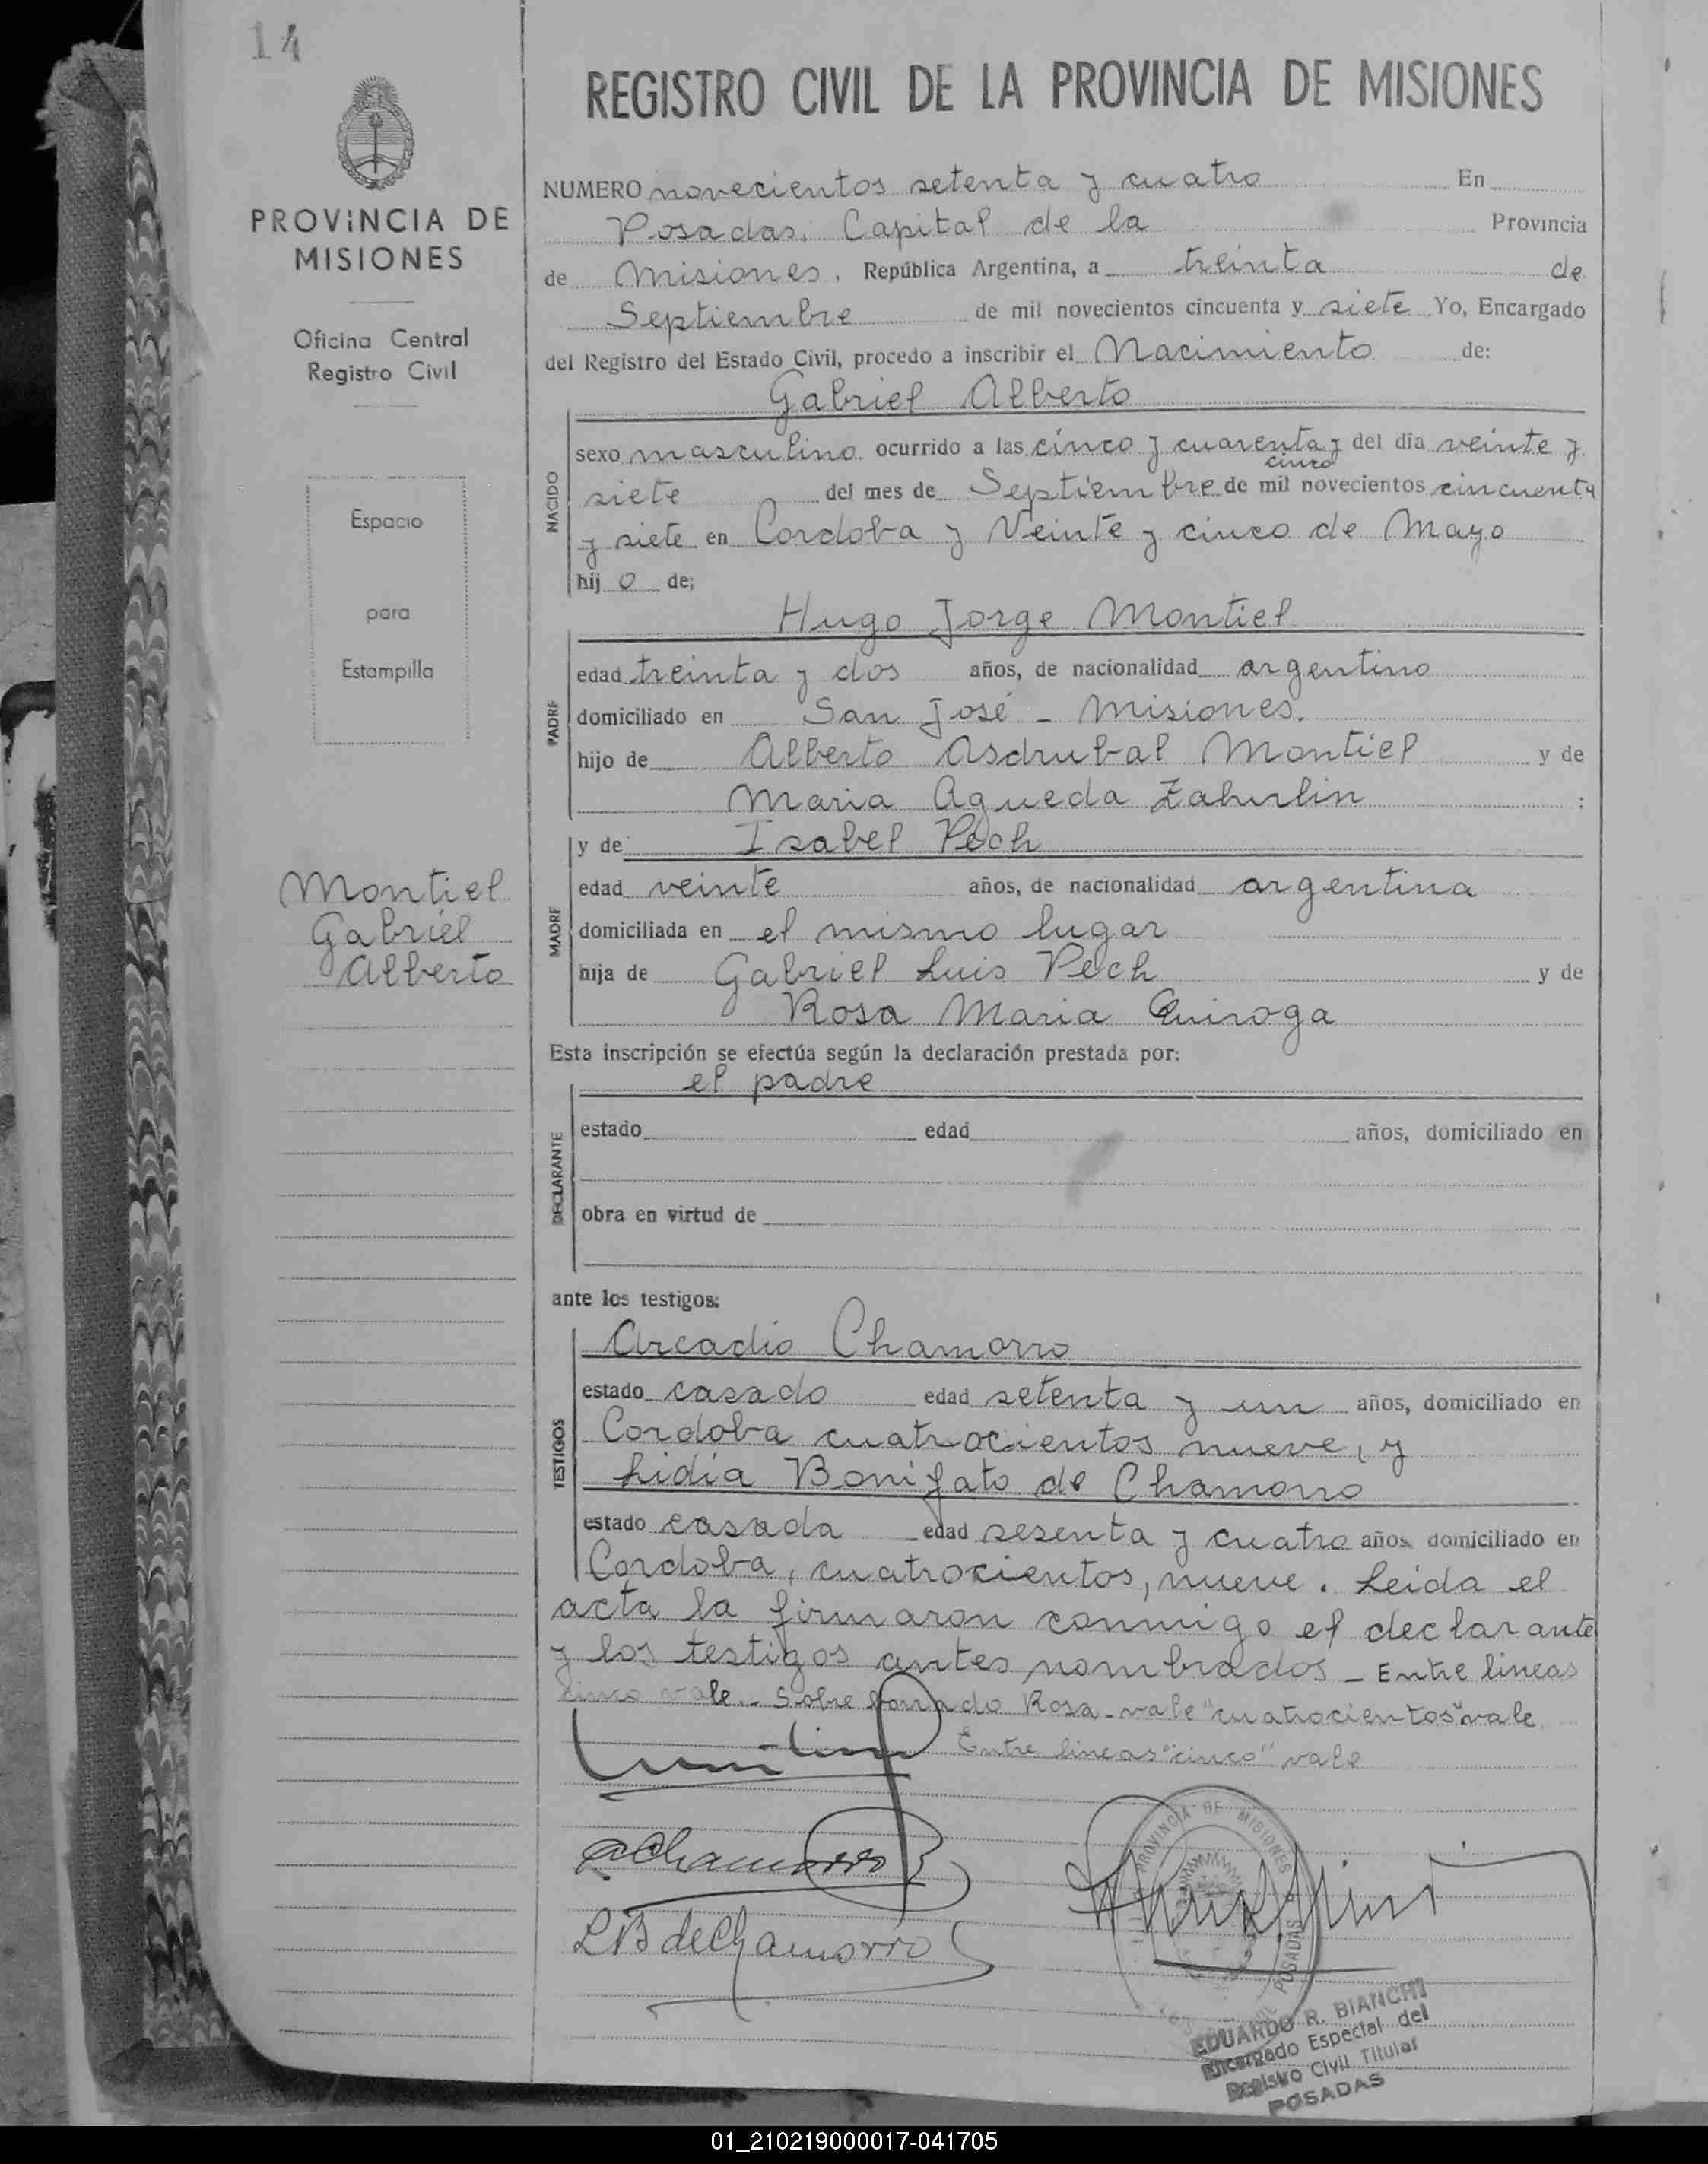 14
PROVINCIA DE
MISIONES
Oficina Central
Registro Civil
Espacio
para
Estampilla
Montiel
Gabriel
Alberto
REGISTRO CIVIL DE LA PROVINCIA DE MISIONES
NUMERO novecientos setenta y cuatro En
Posadas, Capital de la Provincia
de Misiones, República Argentina, a treinta de
Septiembre de mil novecientos cincuenta y siete Yo, Encargado
del Registro del Estado Civil, procedo a inscribir el Nacimiento de:
Gabriel Alberto
NACIDO
sexo masculino ocurrido a las cinco y cuarenta y del día veinte y
cinco
siete del mes de Septiembre de mil novecientos cincuenta
y siete en Cordoba y Veinte y cinco de Mayo
hij o de;
Hugo Jorge Montiel
PADRE
edad treinta y dos años, de nacionalidad argentino
domiciliado en San José - Misiones.
hijo de Alberto Asdrubal Montiel y de
Maria Agueda Zahurlin ;
y de Isabel Pech
MADRE
edad veinte años, de nacionalidad argentina
domiciliada en el mismo lugar
hija de Gabriel Luis Pech y de
Rosa Maria Quiroga
Esta inscripción se efectúa según la declaración prestada por:
el padre
DECLARANTE
estado edad años, domiciliado en
obra en virtud de
ante los testigos:
TESTIGOS
Arcadio Chamorro
estado casado edad setenta y un años, domiciliado en
Cordoba cuatrocientos nueve, y
Lidia Bonifato de Chamorro
estado casada edad sesenta y cuatro años domiciliado en
Cordoba, cuatrocientos, nueve. Leida el
acta la firmaron conmigo el declarante
y los testigos antes nombrados - Entre lineas
cinco vale - Sobre borrado Rosa - vale "cuatrocientos" vale
Entre lineas "cinco" vale
AChamorro
LB de Chamorro
PROVINCIA DE MISIONES
POSADAS
EDUARDO R. BIANCHI
Encargado Especial del
Registro Civil Titular
POSADAS
01_210219000017-041705